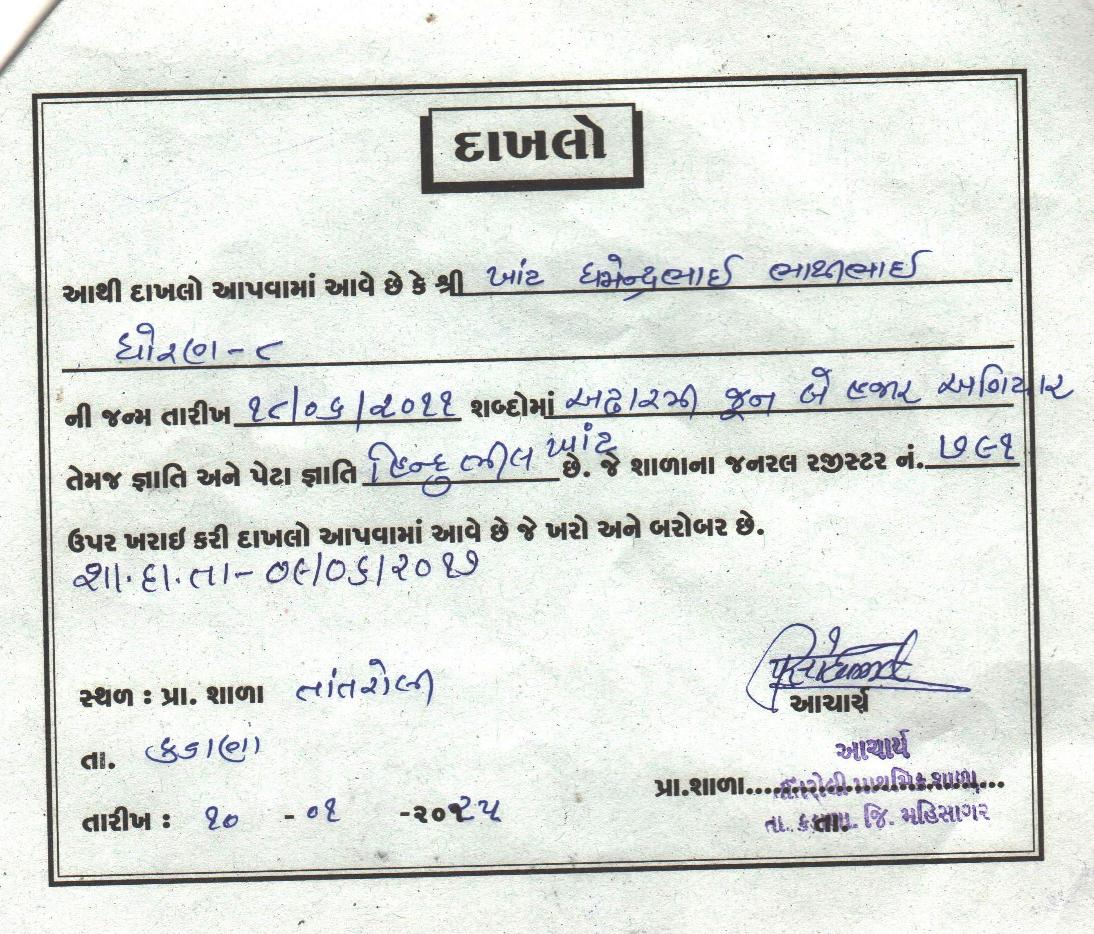 દાખલો
આથી દાખલો આપવામાં આવે છે કે શ્રી ખાંટ ધર્મેન્દ્રભાઈ ભાથીભાઈ
ધોરણ - ૮
ની જન્મ તારીખ ૧૮/૦૬/૨૦૧૧ શબ્દોમાં અઢારમી જૂન બે હજાર અગિયાર
તેમજ જ્ઞાતિ અને પેટા જ્ઞાતિ હિન્દુ ભીલ ખાંટ છે. જે શાળાના જનરલ રજીસ્ટર નં. ૭૯૧
ઉપર ખરાઇ કરી દાખલો આપવામાં આવે છે જે ખરો અને બરોબર છે.
શા.દા.તા - ૦૯/૦૬/૨૦૧૭
સ્થળ : પ્રા. શાળા તાંતરોલી
આચાર્ય
તા. કડાણા
આચાર્ય
પ્રા.શાળા તાંતરોલી પ્રાથમિક શાળા
તારીખ : ૧૦ - ૦૧ - ૨૦૨૫
તા. કડાણા. જિ. મહિસાગર
તા.